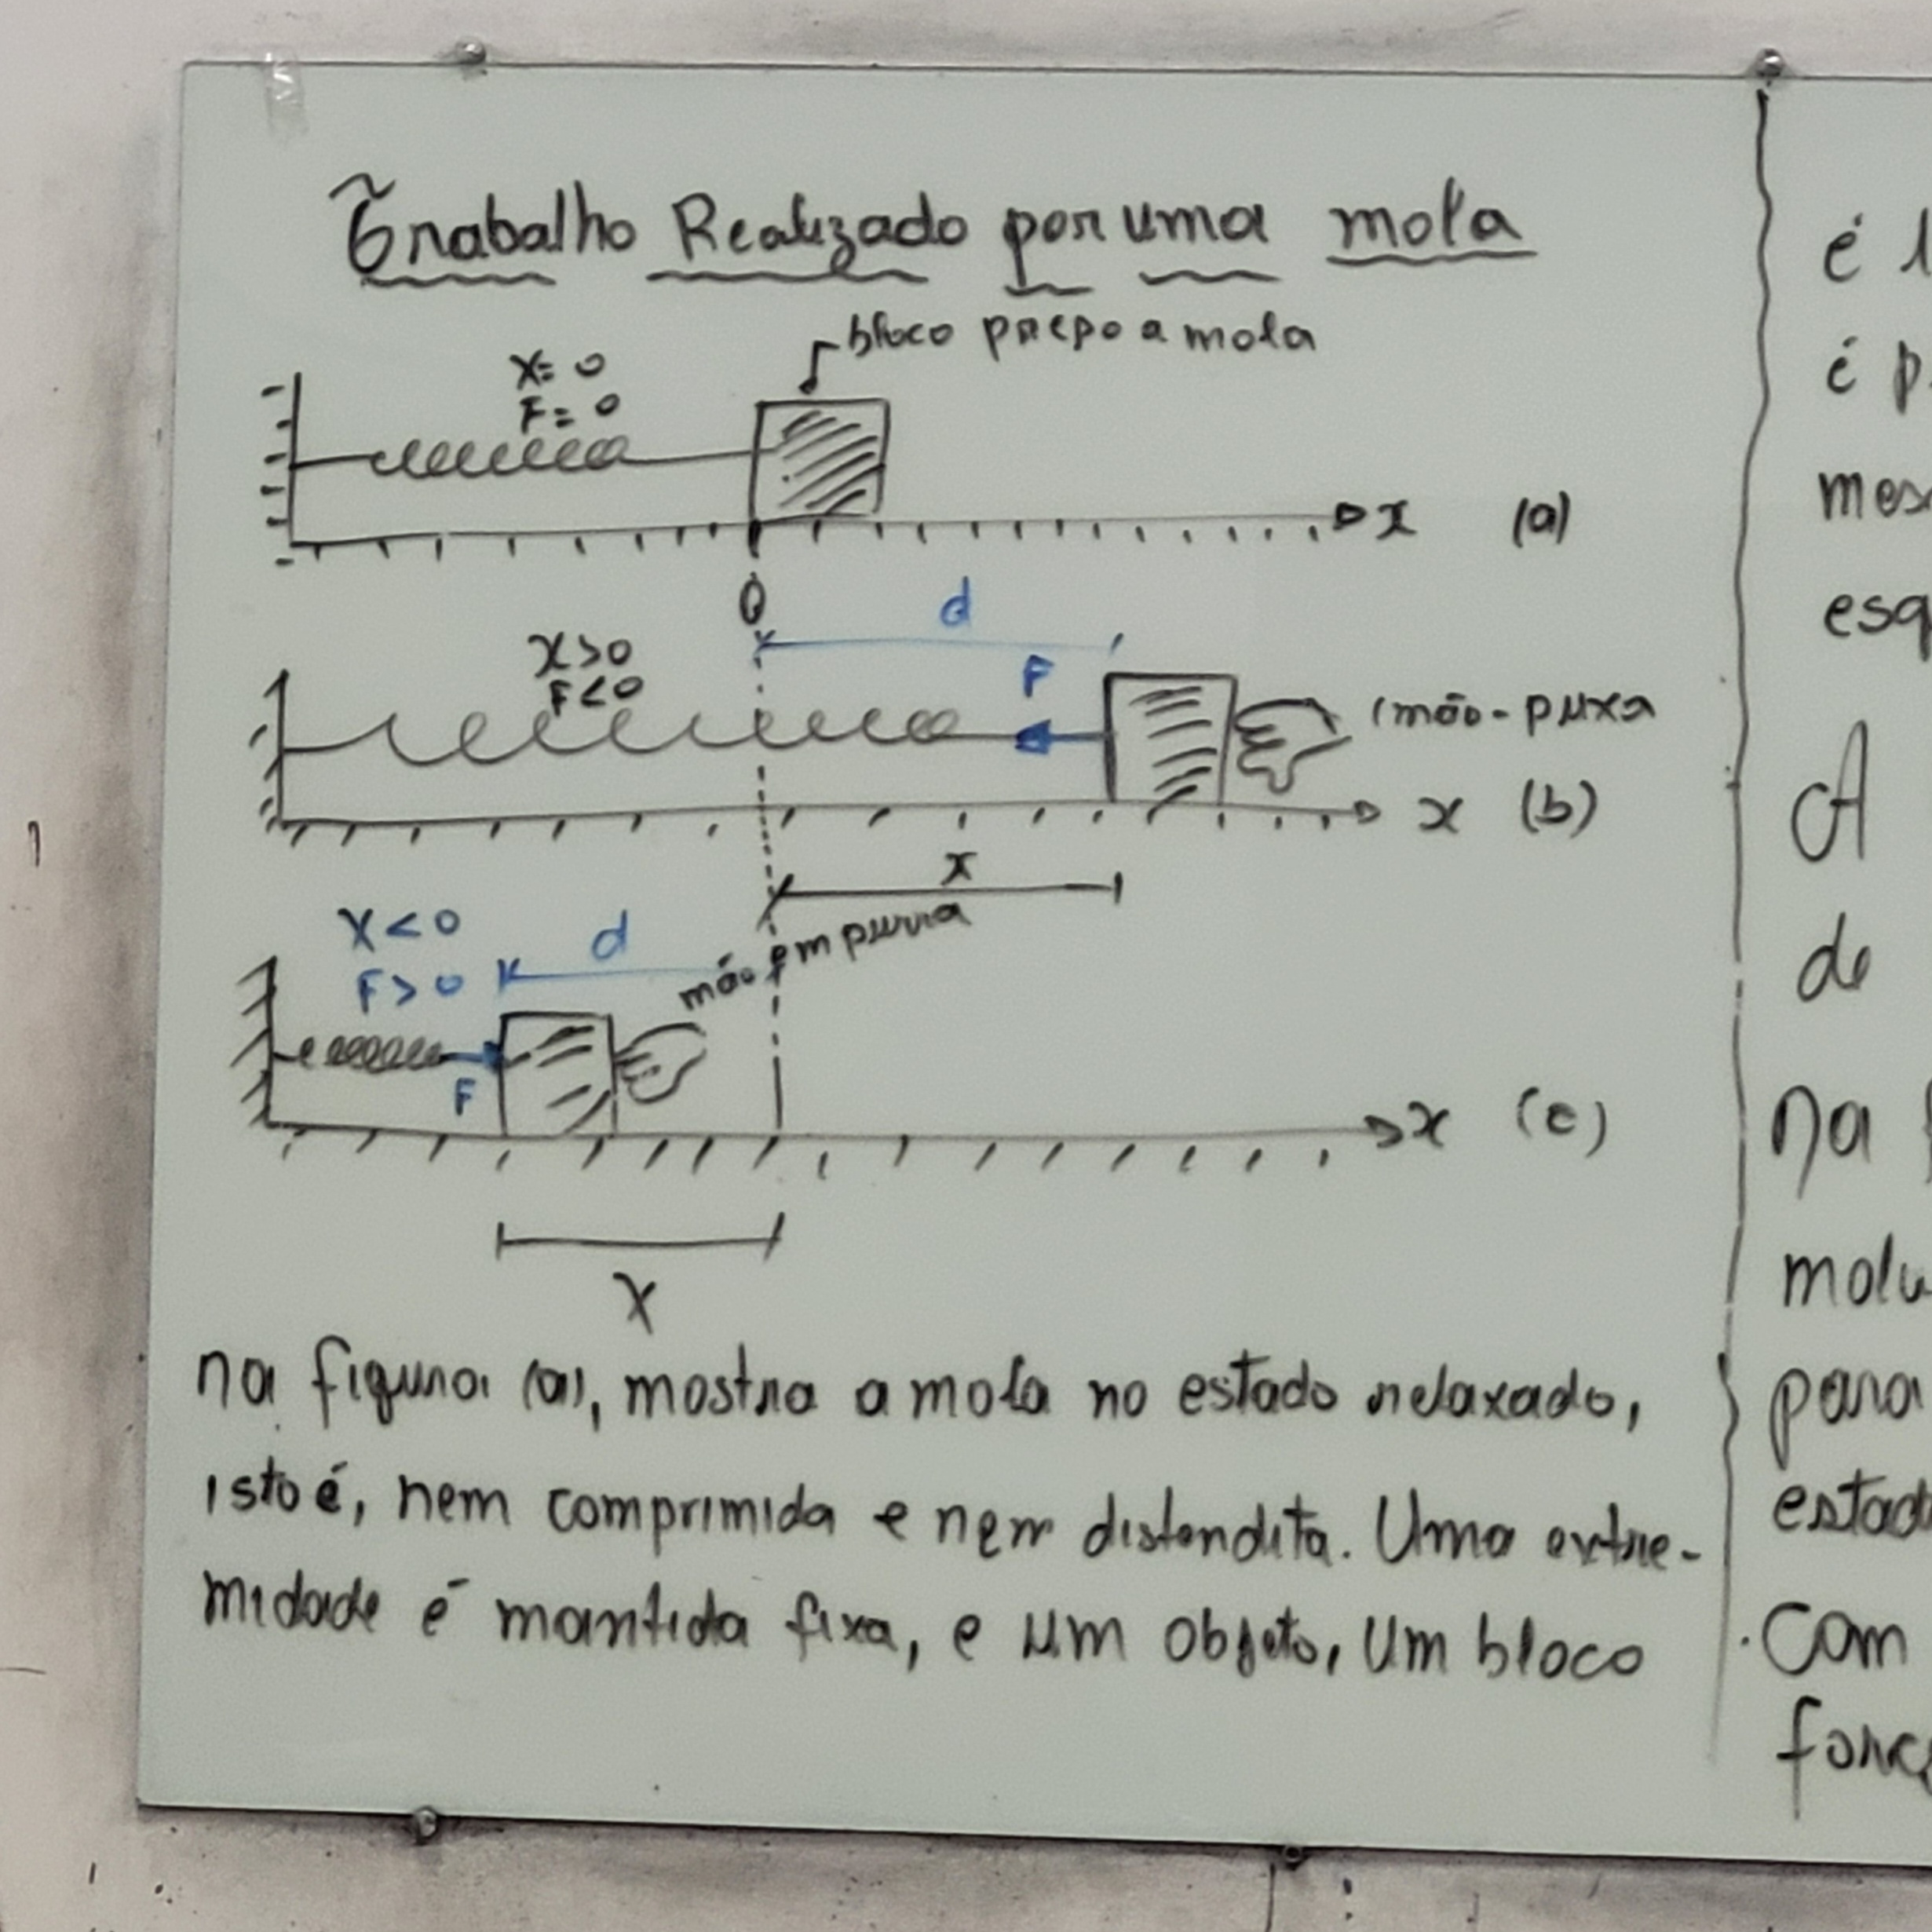 Trabalho Realizado por uma mola
bloco prepo a mola
x= 0
F= 0
x (a)
0
d
x>0
F<0
F
mão-puxa
x (b)
x
x<0
F>0
d
mão empurra
F
x (c)
x
na figura (a), mostra a mola no estado relaxado,
isto é, nem comprimida e nem distendita. Uma extre-
midade é mantida fixa, e um objeto, um bloco
é
é
esq
A
de
na
para
estad
Com